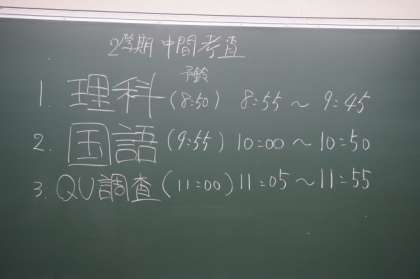 2学期 中間考査
予鈴
1. 理科 (8:50) 8:55 〜 9:45
2. 国語 (9:55) 10:00 〜 10:50
3. QU調査 (11:00) 11:05 〜 11:55